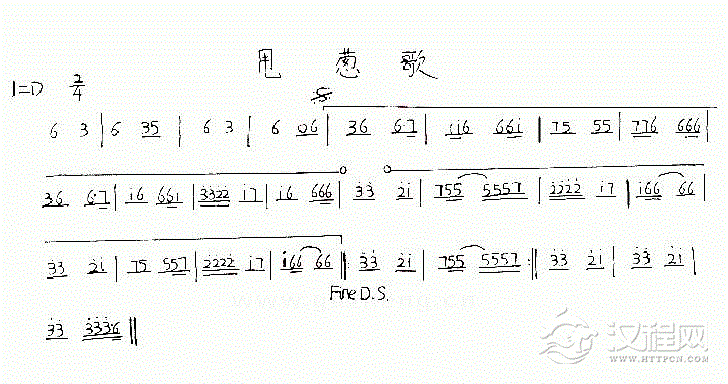 甩葱歌
1=D 2/4
6 3 | 6 35 | 6 3 | 6 06 | 36 6·7 | i̇i̇6 66i̇ | 75 55 | 776 666 |
36 6·7 | i̇6 66i̇ | 3̇3̇2̇2̇ i̇7 | i̇6 666 | 3̇3̇ 2̇i̇ | 755 5557 | 2̇2̇2̇2̇ i̇7 | i̇66 66 |
3̇3̇ 2̇i̇ | 75 557 | 2̇2̇2̇2̇ i̇7 | i̇66 66 || 3̇3̇ 2̇i̇ | 755 5557 :|| 3̇3̇ 2̇i̇ | 3̇3̇ 2̇i̇ |
Fine D.S.
3̇3̇ 3̇3̇3̇6 ||
汉程网
WWW.HTTPCN.COM